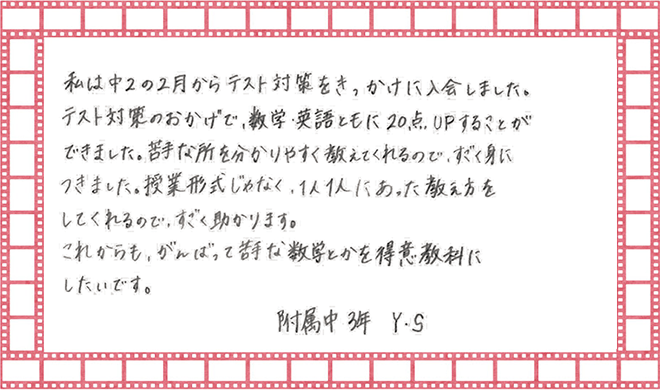 私は中2の2月からテスト対策をきっかけに入会しました。
テスト対策のおかげで、数学・英語ともに20点UPすることが
できました。苦手な所を分かりやすく教えてくれるので、すごく身に
つきました。授業形式じゃなく、1人1人にあった教え方を
してくれるので、すごく助かります。
これからも、がんばって苦手な数学とかを得意教科に
したいです。
附属中3年 Y・S